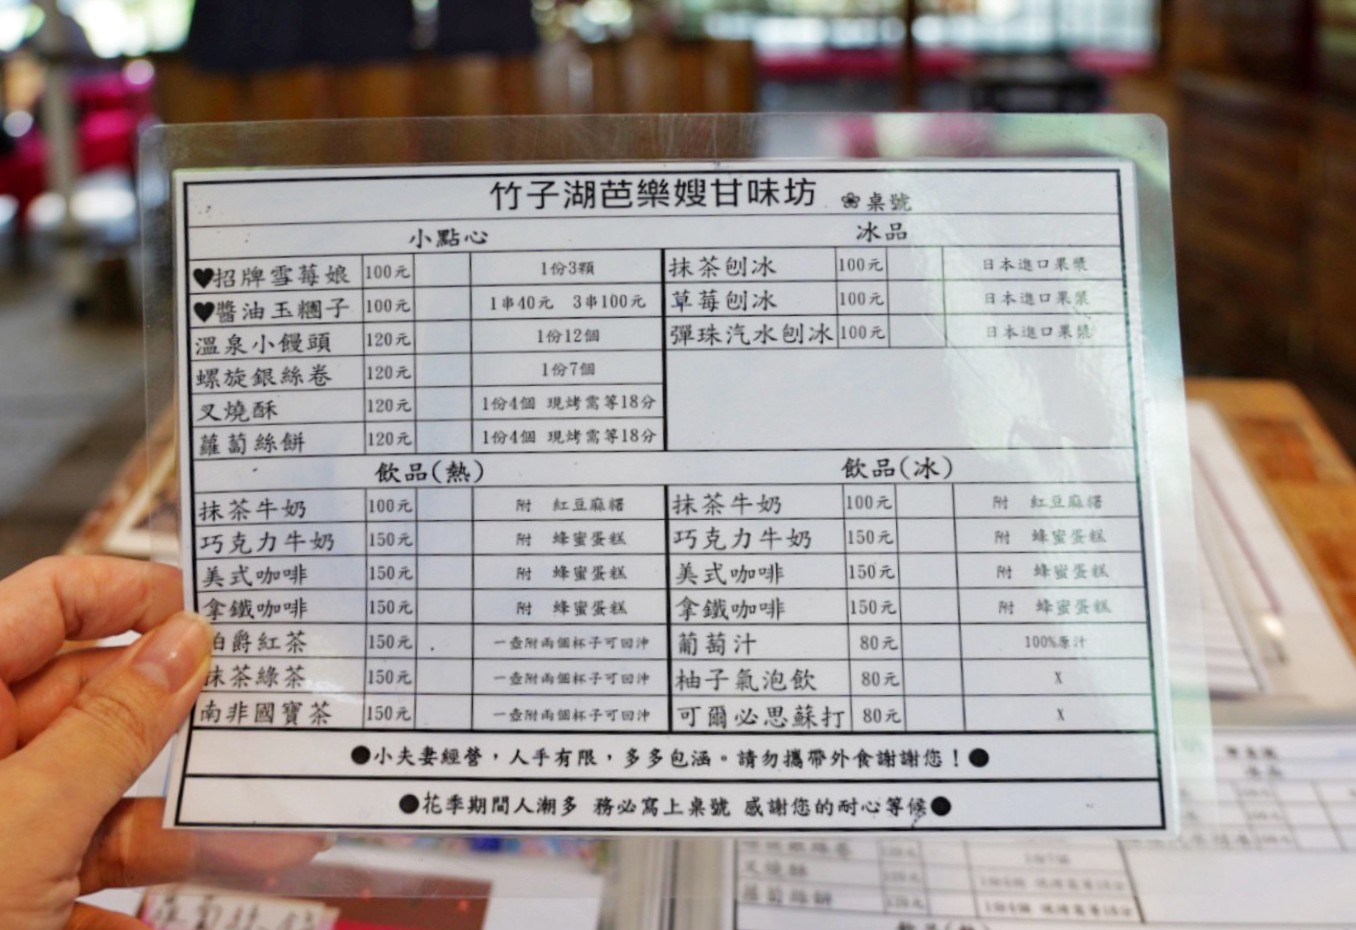 竹子湖芭樂嫂甘味坊 ❀桌號
小點心 冰品
♥招牌雪莓娘 100元 1份3顆 抹茶刨冰 100元 日本進口果漿
♥醬油玉糰子 100元 1串40元 3串100元 草莓刨冰 100元 日本進口果漿
溫泉小饅頭 120元 1份12個 彈珠汽水刨冰 100元 日本進口果漿
螺旋銀絲卷 120元 1份7個
叉燒酥 120元 1份4個 現烤需等18分
蘿蔔絲餅 120元 1份4個 現烤需等18分
飲品(熱) 飲品(冰)
抹茶牛奶 100元 附 紅豆麻糬 抹茶牛奶 100元 附 紅豆麻糬
巧克力牛奶 150元 附 蜂蜜蛋糕 巧克力牛奶 150元 附 蜂蜜蛋糕
美式咖啡 150元 附 蜂蜜蛋糕 美式咖啡 150元 附 蜂蜜蛋糕
拿鐵咖啡 150元 附 蜂蜜蛋糕 拿鐵咖啡 150元 附 蜂蜜蛋糕
伯爵紅茶 150元 一壺附兩個杯子可回沖 葡萄汁 80元 100%原汁
抹茶綠茶 150元 一壺附兩個杯子可回沖 柚子氣泡飲 80元 X
南非國寶茶 150元 一壺附兩個杯子可回沖 可爾必思蘇打 80元 X
●小夫妻經營，人手有限，多多包涵。請勿攜帶外食謝謝您！●
●花季期間人潮多 務必寫上桌號 感謝您的耐心等候●
叉燒酥
蘿蔔絲餅